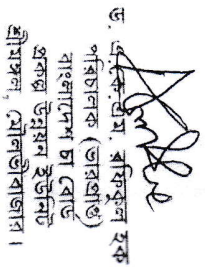 ড. এ.কে.এম. রফিকুল হক
পরিচালক (ভারপ্রাপ্ত)
বাংলাদেশ চা বোর্ড
প্রকল্প উন্নয়ন ইউনিট
শ্রীমঙ্গল, মৌলভীবাজার।